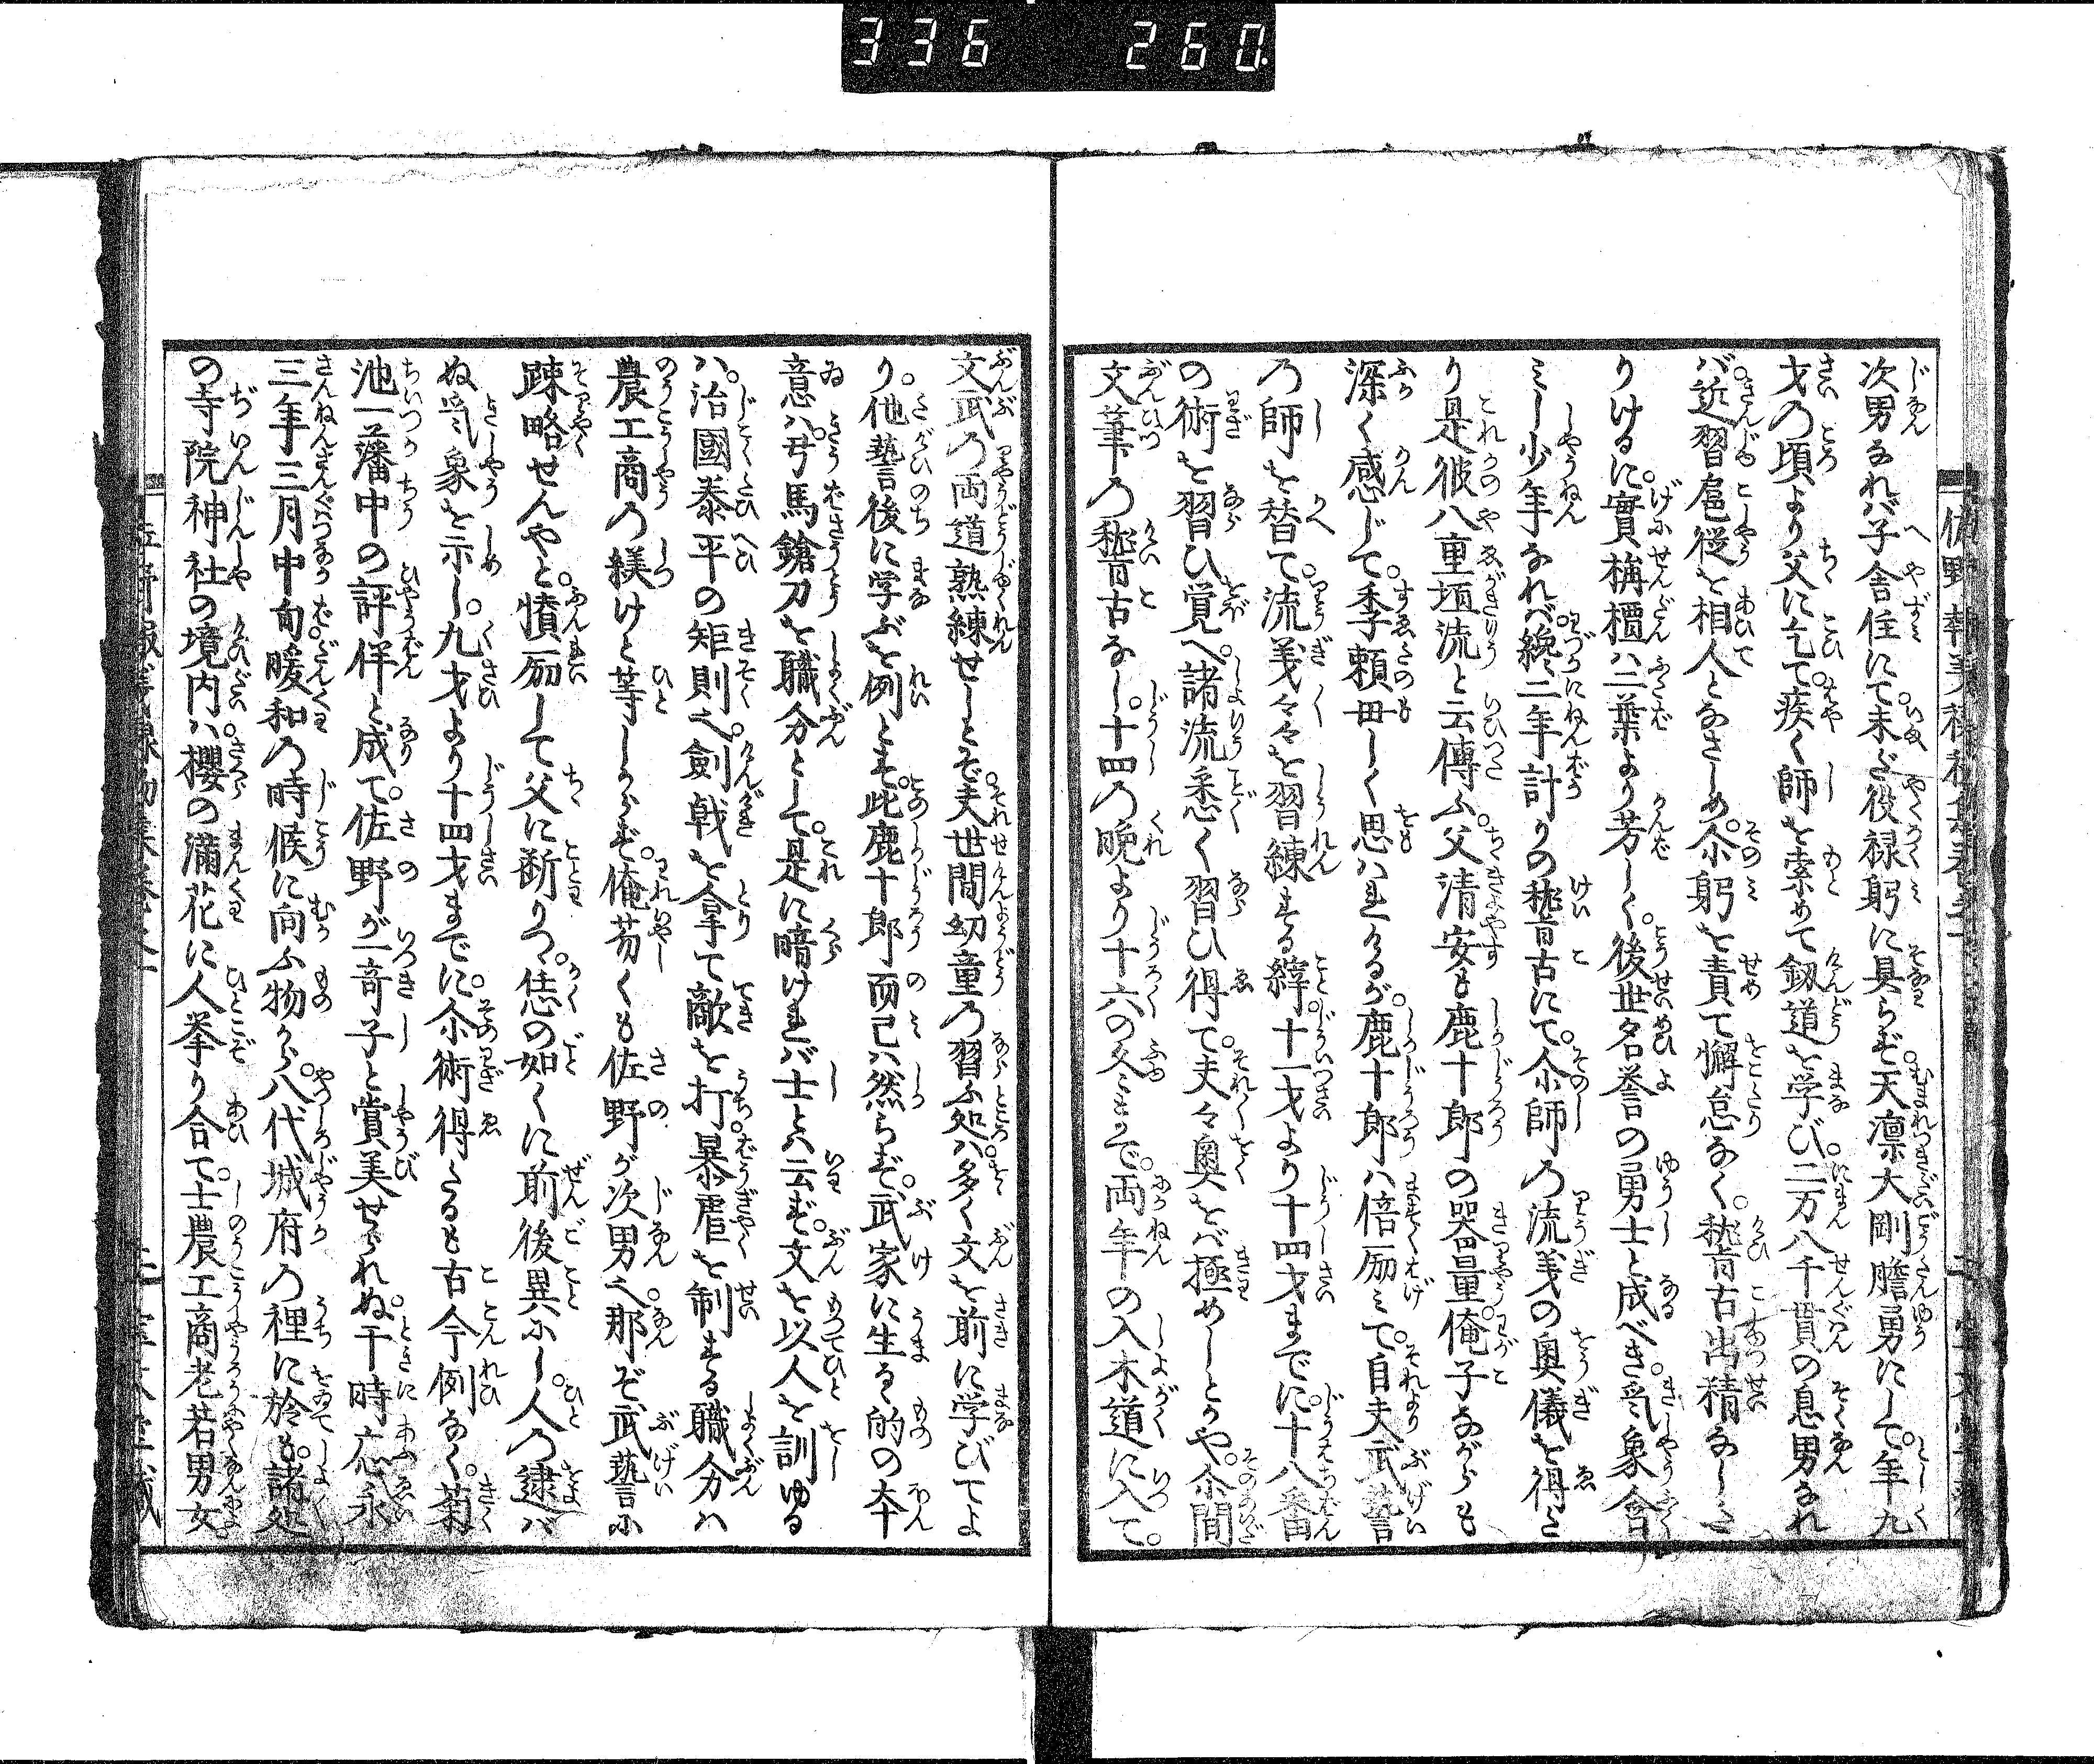 336 260
次男なれバ子舎住にて。未ダ役禄躬に具らず。天凛大剛膽勇にして。年九
才乃頃より父に乞て。疾く師を索めて釼道を学び。二万八千貫の息男なれ
バ。近習扈従を相人となさしめ。尓躬を責て懈怠なく。嵆古出精なしさ
りけるに。實栴檀ハ二葉より芳しく。後世名誉の勇士と成べき。気象含
ミし少年なれバ。纔二年計りの嵆古にて。尓師乃流義の奥儀を得さ
り是彼八重垣流と云傳ふ。父清安も鹿十郎の器量。俺子ながらも
深く感じて。季頼毋しく思ハれけるが。鹿十郎ハ倍励ミて。自夫武藝
乃師を替て。流義々々を習練する縡。十一才より十四才までに。十八番
の術を習ひ覚へ。諸流悉く習ひ得て。夫々奥をバ極めしとかや。尓間
文筆乃嵆古なし。十四乃晩より十六の冬ミまで。両年の入木道に入て。
文武乃両道熟練せしとぞ。夫世間幼童乃習ふ処ハ。多く文を前に学びてよ
り。他藝後に学ぶを例とす。此鹿十郎而已ハ然らず。武家に生るゝ的の本
意ハ。弓馬鎗刀を職分として。是に暗けれバ士とハ云ず。文を以人を訓ゆる
ハ。治國泰平の矩則也。劍戟を拿て敵を打。暴虐を制する職分ハ
農工商乃業けと等しからず。俺苟くも佐野が次男也。那ぞ武藝に
踈略せんやと。憤励して父に断りつ。恁の如くに前後異にし。人乃逮バ
ぬ気象を示し。九才より十四才までに。尓術得たるも古今例なく。菊
池一藩中の評伴と成て。佐野が一奇子と賞美せられぬ。干時応永
三年三月中旬。暖和乃時候に向ふ物から。八代城府乃裡に於も。諸処
の寺院神社の境内ハ。櫻の満花に人挙り合て。士農工商老若男女